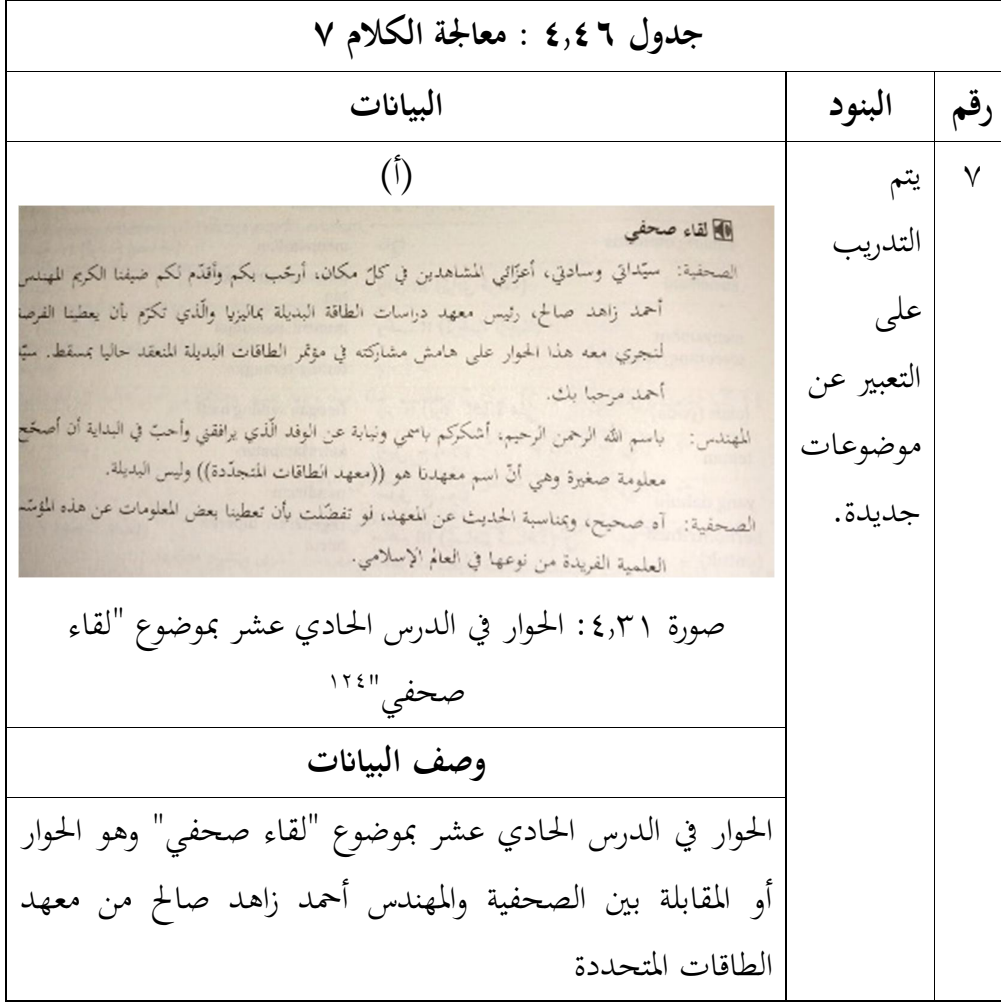 جدول ٤,٤٦ : معالجة الكلام ٧
رقم البنود البيانات
٧
يتم
التدريب
على
التعبير عن
موضوعات
جديدة.
(أ)
لقاء صحفي
الصحفية: سيّداتي وسادتي، أعزّائي المشاهدين في كلّ مكان، أرحّب بكم وأقدّم لكم ضيفنا الكريم المهندس
أحمد زاهد صالح، رئيس معهد دراسات الطاقة البديلة بماليزيا والّذي تكرّم بأن يعطينا الفرصة
لنجري معه هذا الحوار على هامش مشاركته في مؤتمر الطاقات البديلة المنعقد حاليا بمسقط.
أحمد مرحبا بك.
المهندس: باسم الله الرحمن الرحيم، أشكركم باسمي ونيابة عن الوفد الّذي يرافقني وأحبّ في البداية أن أصحّح
معلومة صغيرة وهي أنّ اسم معهدنا هو ((معهد الطاقات المتجدّدة)) وليس البديلة.
الصحفية: آه صحيح، وبمناسبة الحديث عن المعهد، لو تفضّلت بأن تعطينا بعض المعلومات عن هذه
العلمية الفريدة من نوعها في العالم الإسلامي.
صورة ٤,٣١: الحوار في الدرس الحادي عشر بموضوع "لقاء
صحفي"١٢٤
وصف البيانات
الحوار في الدرس الحادي عشر بموضوع "لقاء صحفي" وهو الحوار
أو المقابلة بين الصحفية والمهندس أحمد زاهد صالح من معهد
الطاقات المتحددة